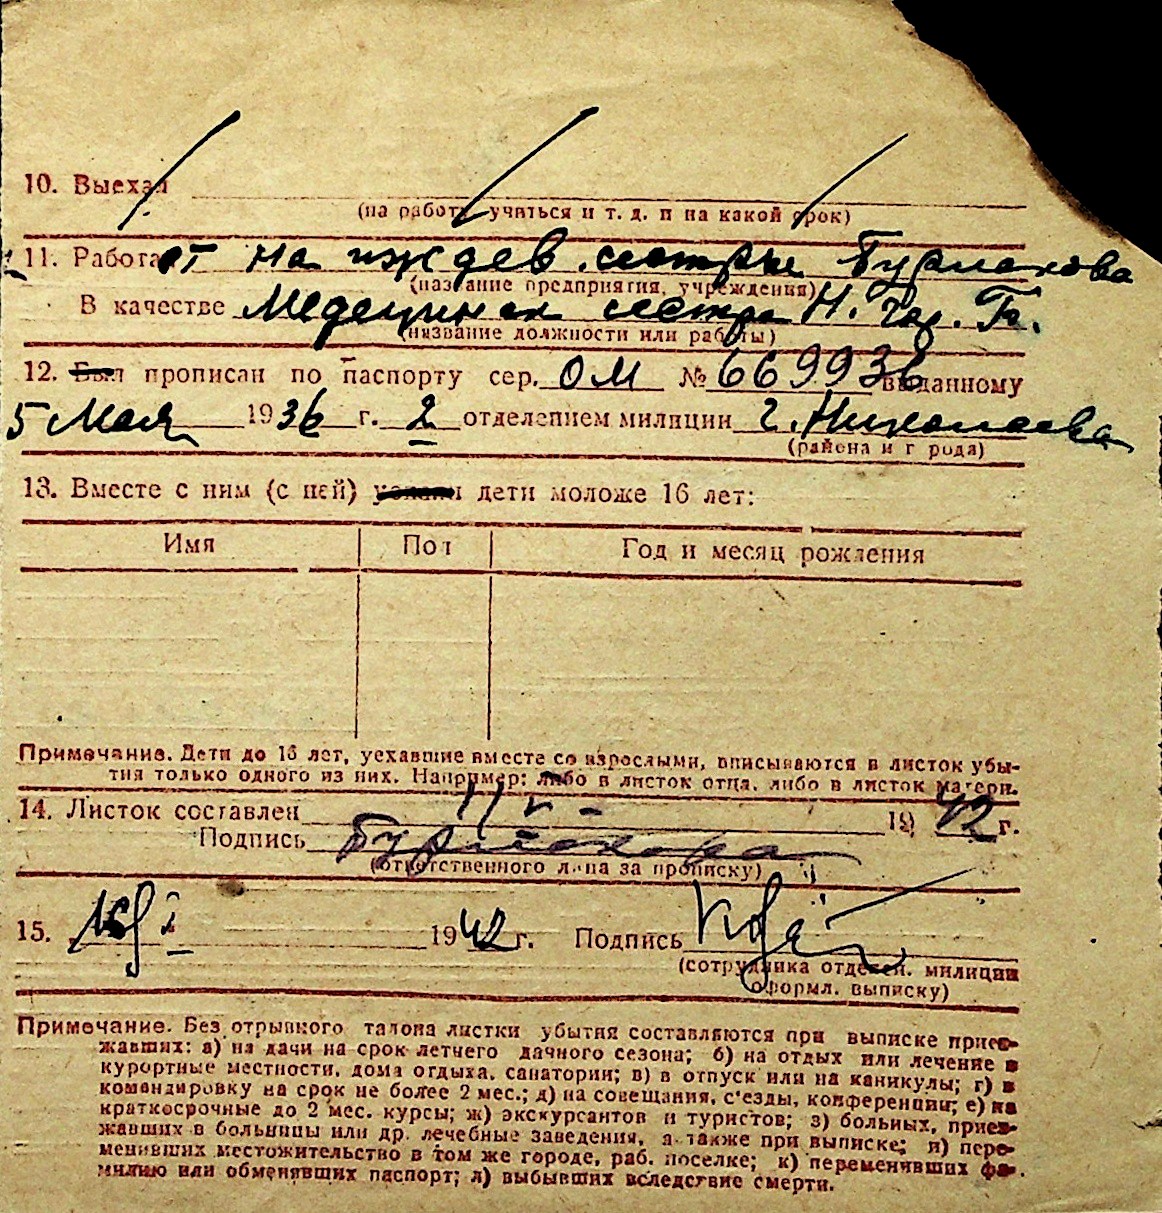 10. Выехал
(на работу учиться и т. д. и на какой срок)
11. Работает на иждев. сестры Бурлакова
(название предприятия, учреждения)
В качестве Медецинск сестра Н.
(название должности или работы)
12. Был прописан по паспорту сер. ОМ № 669936 выданному
5 Мая 1936 г. 2 отделением милиции г. Николаева
(района и г рода)
13. Вместе с ним (с ней) уехали дети моложе 16 лет:
Имя Пол Год и месяц рождения
Примечание. Дети до 16 лет, уехавшие вместе со взрослыми, вписываются в листок убы-
тия только одного из них. Например: либо в листок отца, либо в листок матери.
14. Листок составлен 1942 г.
Подпись Бурлакова
(ответственного лица за прописку)
15. 1942 г. Подпись
(сотрудника отделен. милиции
оформл. выписку)
Примечание. Без отрывного талона листки убытия составляются при выписке приез-
жавших: а) на дачи на срок летнего дачного сезона; б) на отдых или лечение в
курортные местности, дома отдыха, санатории; в) в отпуск или на каникулы; г) в
командировку на срок не более 2 мес.; д) на совещания, с'езды, конференции; е) на
краткосрочные до 2 мес. курсы; ж) экскурсантов и туристов; з) больных, приез-
жавших в больницы или др. лечебные заведения, а также при выписке; и) пере-
менивших местожительство в том же городе, раб. поселке; к) переменивших фа-
милию или обменявших паспорт; л) выбывших вследствие смерти.